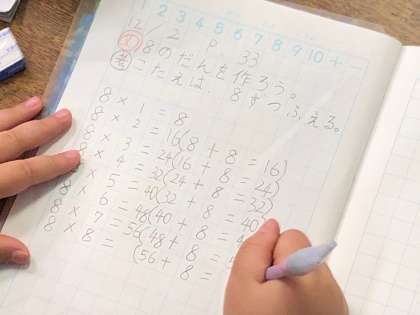 1 2 3 4 5 6 7 8 9 10 + -
12/2 P. 33
8のだんを作ろう。
こたえは 8ずつふえる。
8 × 1 = 8
8 × 2 = 16(8 + 8 = 16)
8 × 3 = 24(16 + 8 = 24)
8 × 4 = 32(24 + 8 = 32)
8 × 5 = 40(32 + 8 = 40)
8 × 6 = 48(40 + 8 =
8 × 7 = 56(48 + 8 =
8 × 8 = (56 + 8 =